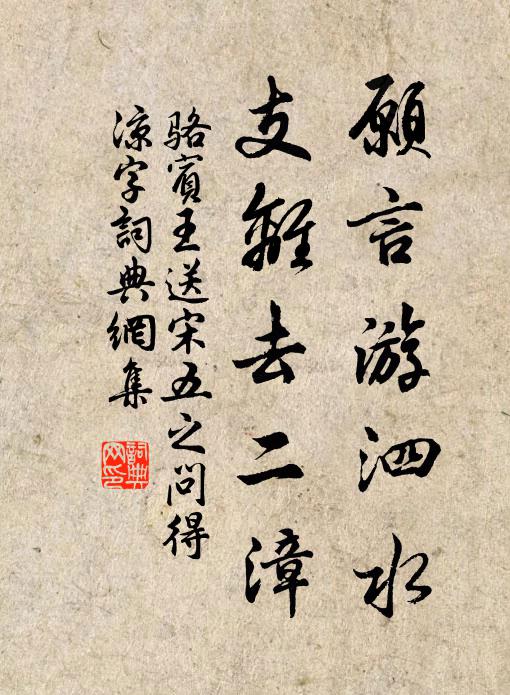 願言游泗水
支離去二漳
駱賓王送宋五之問得
涼字詞典網集
詞典网印